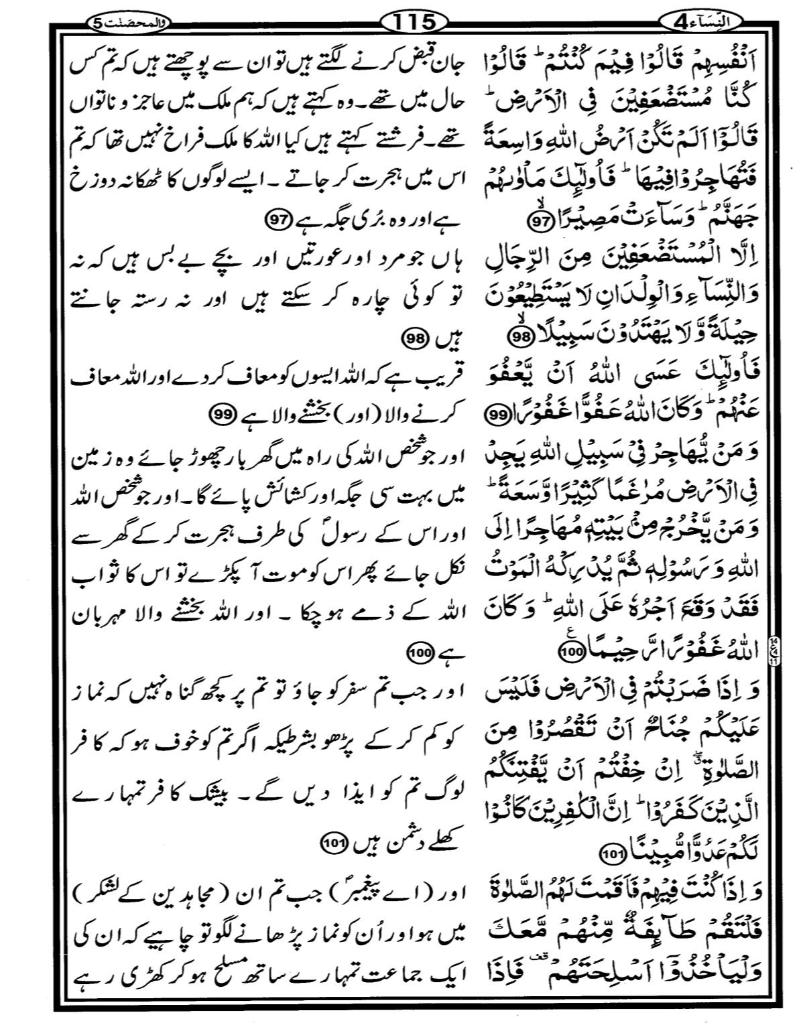 النِّسَآء 4
115
والمحصنٰت 5
اَنۡفُسِهِمۡ قَالُوۡا فِيۡمَ كُنۡتُمۡ‌ؕ قَالُوۡا
كُنَّا مُسۡتَضۡعَفِيۡنَ فِى الۡاَرۡضِ‌ؕ
قَالُوۡۤا اَلَمۡ تَكُنۡ اَرۡضُ اللّٰهِ وَاسِعَةً
فَتُهَاجِرُوۡا فِيۡهَا‌ؕ فَاُولٰٓٮِٕكَ مَاۡوٰٮهُمۡ
جَهَنَّمُ‌ؕ وَسَآءَتۡ مَصِيۡرًاۙ‏ 97
اِلَّا الۡمُسۡتَضۡعَفِيۡنَ مِنَ الرِّجَالِ
وَالنِّسَآءِ وَالۡوِلۡدَانِ لَا يَسۡتَطِيۡعُوۡنَ
حِيۡلَةً وَّلَا يَهۡتَدُوۡنَ سَبِيۡلًاۙ‏ 98
فَاُولٰٓٮِٕكَ عَسَى اللّٰهُ اَنۡ يَّعۡفُوَ
عَنۡهُمۡ‌ؕ وَكَانَ اللّٰهُ عَفُوًّا غَفُوۡرًا‏ 99
وَمَنۡ يُّهَاجِرۡ فِىۡ سَبِيۡلِ اللّٰهِ يَجِدۡ
فِى الۡاَرۡضِ مُرٰغَمًا كَثِيۡرًا وَّسَعَةً‌ ؕ
وَمَنۡ يَّخۡرُجۡ مِنۡۢ بَيۡتِهٖ مُهَاجِرًا اِلَى
اللّٰهِ وَرَسُوۡلِهٖ ثُمَّ يُدۡرِكۡهُ الۡمَوۡتُ
فَقَدۡ وَقَعَ اَجۡرُهٗ عَلَى اللّٰهِ‌ ؕ وَكَانَ
اللّٰهُ غَفُوۡرًا رَّحِيۡمًا‏ 100 ع
وَاِذَا ضَرَبۡتُمۡ فِى الۡاَرۡضِ فَلَيۡسَ
عَلَيۡكُمۡ جُنَاحٌ اَنۡ تَقۡصُرُوۡا مِنَ
الصَّلٰوةِ ‌ۖ اِنۡ خِفۡتُمۡ اَنۡ يَّفۡتِنَكُمُ
الَّذِيۡنَ كَفَرُوۡا‌ ؕ اِنَّ الۡكٰفِرِيۡنَ كَانُوۡا
لَـكُمۡ عَدُوًّا مُّبِيۡنًا‏ 101
وَاِذَا كُنۡتَ فِيۡهِمۡ فَاَقَمۡتَ لَهُمُ الصَّلٰوةَ
فَلۡتَقُمۡ طَآٮِٕفَةٌ مِّنۡهُمۡ مَّعَكَ
وَلۡيَاۡخُذُوۡۤا اَسۡلِحَتَهُمۡ فَاِذَا
جان قبض کرنے لگتے ہیں تو ان سے پوچھتے ہیں کہ تم کس
حال میں تھے۔ وہ کہتے ہیں کہ ہم ملک میں عاجز و ناتواں
تھے۔ فرشتے کہتے ہیں کیا اللہ کا ملک فراخ نہیں تھا کہ تم
اس میں ہجرت کر جاتے۔ ایسے لوگوں کا ٹھکانہ دوزخ
ہے اور وہ بُری جگہ ہے 97
ہاں جو مرد اور عورتیں اور بچے بے بس ہیں کہ نہ
تو کوئی چارہ کر سکتے ہیں اور نہ رستہ جانتے
ہیں 98
قریب ہے کہ اللہ ایسوں کو معاف کر دے اور اللہ معاف
کرنے والا (اور) بخشنے والا ہے 99
اور جو شخص اللہ کی راہ میں گھر بار چھوڑ جائے وہ زمین
میں بہت سی جگہ اور کشائش پائے گا۔ اور جو شخص اللہ
اور اس کے رسولؐ کی طرف ہجرت کر کے گھر سے
نکل جائے پھر اس کو موت آ پکڑے تو اس کا ثواب
اللہ کے ذمے ہو چکا۔ اور اللہ بخشنے والا مہربان
ہے 100
اور جب تم سفر کو جاؤ تو تم پر کچھ گناہ نہیں کہ نماز
کو کم کر کے پڑھو بشرطیکہ اگر تم کو خوف ہو کہ کافر
لوگ تم کو ایذا دیں گے۔ بیشک کافر تمہارے
کھلے دشمن ہیں 101
اور (اے پیغمبرؐ) جب تم ان (مجاہدین کے لشکر)
میں ہو اور اُن کو نماز پڑھانے لگو تو چاہیے کہ ان کی
ایک جماعت تمہارے ساتھ مسلح ہو کر کھڑی رہے